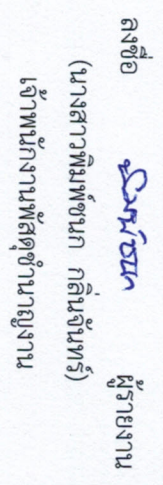 ลงชื่อ พิมพ์ชนก ผู้รายงาน
(นางสาวพิมพ์ชนก กลิ่นจันทร์)
เจ้าพนักงานพัสดุชำนาญงาน